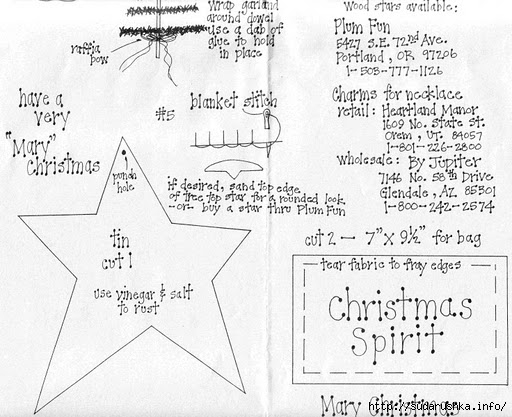 wrap garland
around dowel
use a dab of
glue to hold
in place
raffia
bow
have a
very
"Mary"
Christmas
#5
blanket stitch
punch
hole
if desired, sand top edge
of tree top star for a rounded look
-or- buy a star thru Plum Fun
tin
cut 1
use vinegar & salt
to rust
Wood stars available:
Plum Fun
5427 S.E. 72nd Ave.
Portland, OR 97206
1-503-777-1126
Charms for necklace
retail: Heartland Manor
1609 No. State St.
Orem, UT. 84057
1-801-226-2800
wholesale: By Jupiter
7146 No. 58th Drive
Glendale, AZ 85301
1-800-242-2574
cut 2 — 7" x 9½" for bag
tear fabric to fray edges
Christmas
Spirit
Mary Christmas
http://sudarushka.info/